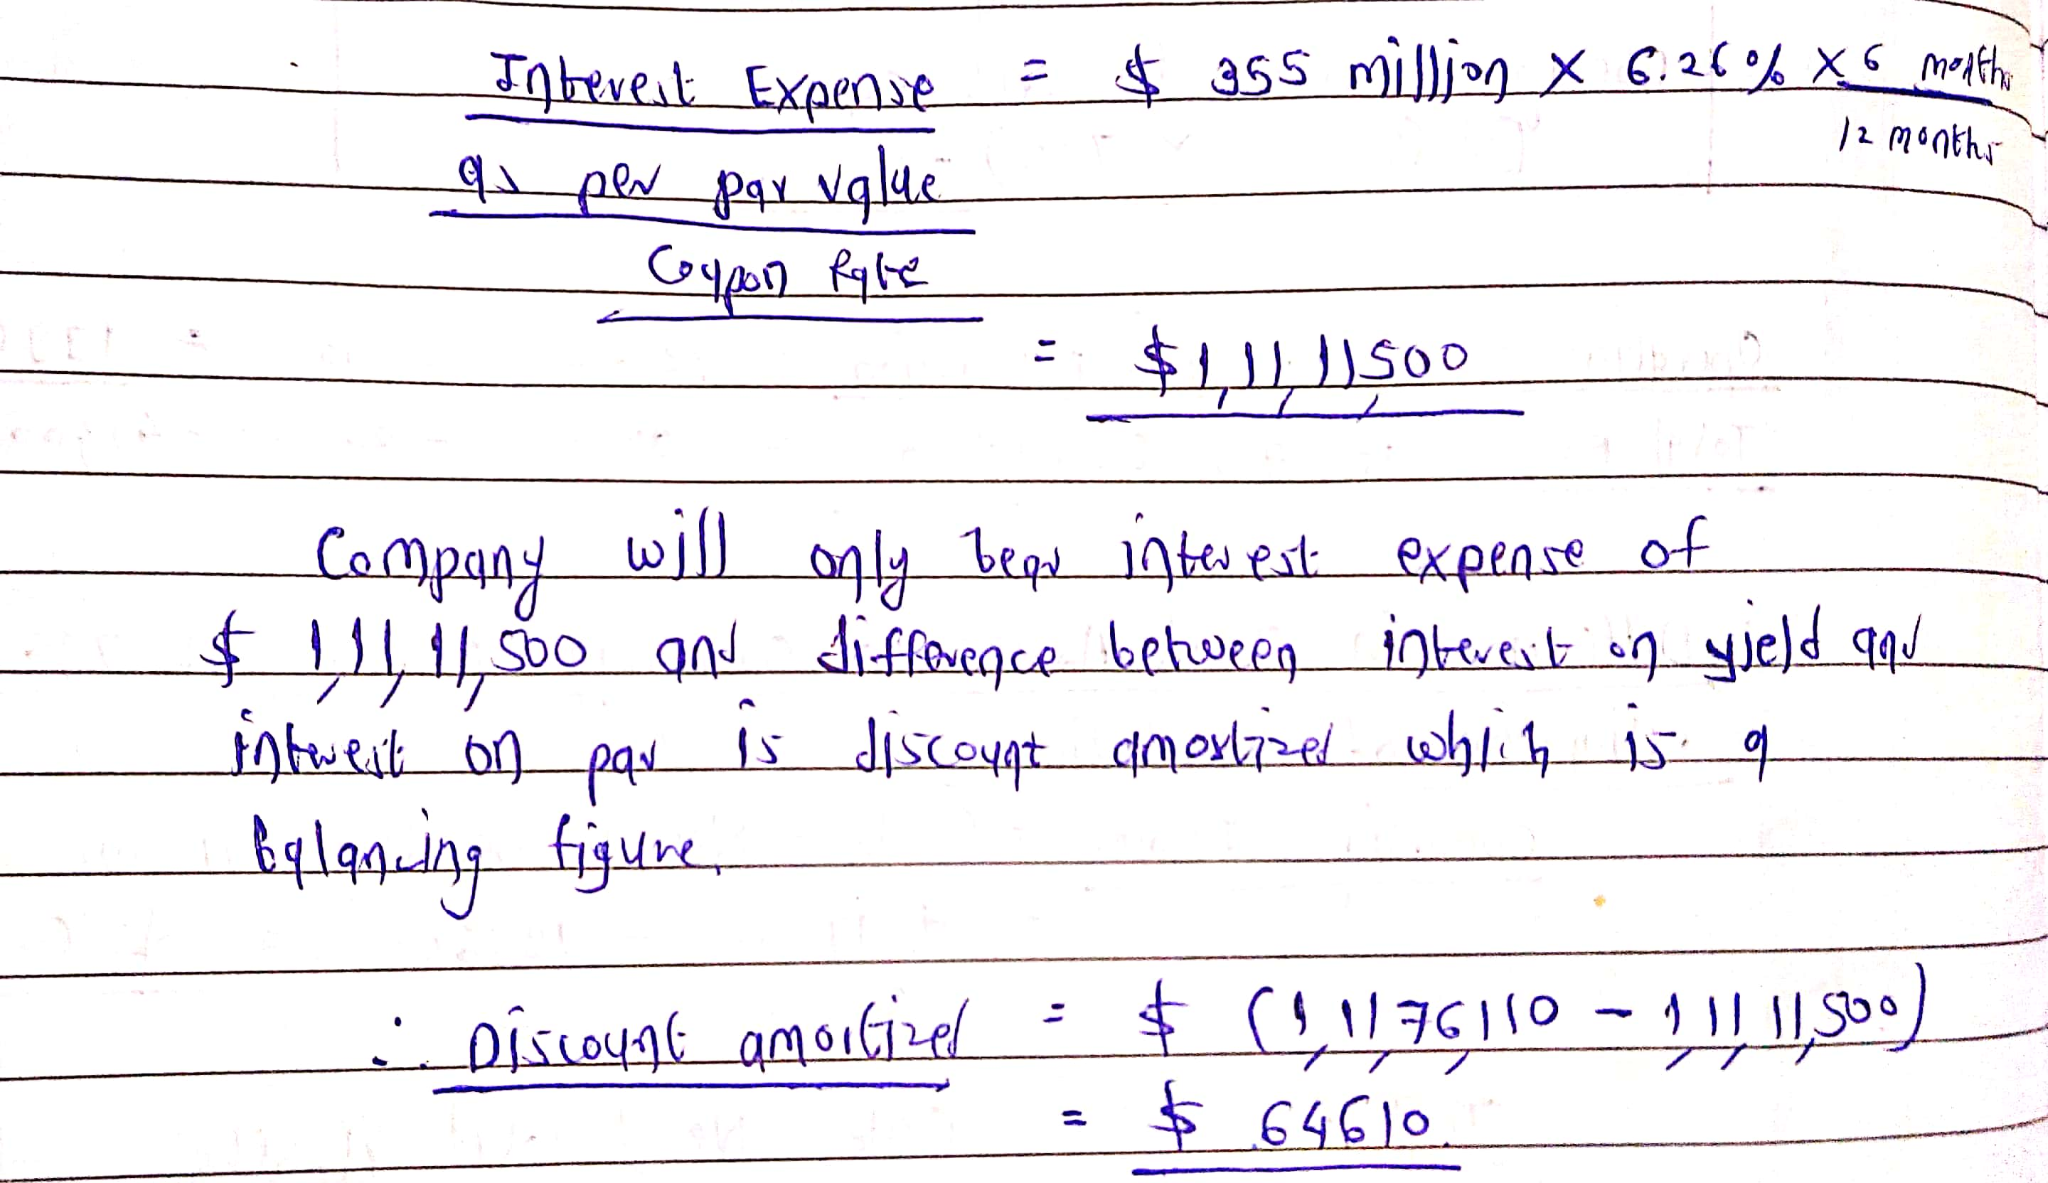 Interest Expense = $ 355 million X 6.26% X 6 months
12 months
as per par value
Coupon Rate
= $1,11,11,500
Company will only bear interest expense of
$ 1,11,11,500 and difference between interest on yield and
interest on par is discount amortized which is a
balancing figure.
∴ Discount amortized = $ (1,11,76,110 - 1,11,11,500)
= $ 64610.